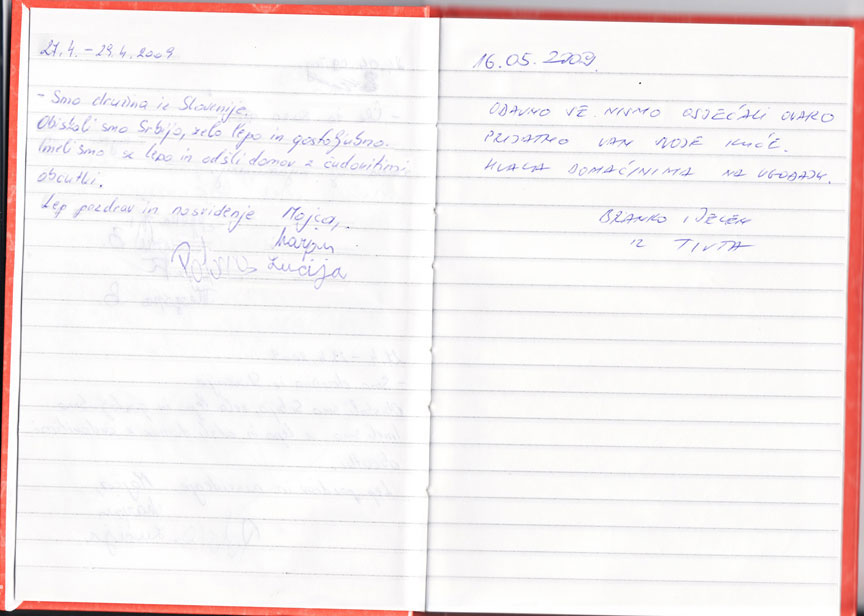 27.4. – 29.4. 2009
- Smo družina iz Slovenije.
Obiskali smo Srbijo, zelo lepo in gostoljubno.
Imeli smo se lepo in odšli domov z čudovitimi
občutki.
Lep pozdrav in nasvidenje Mojca,
Lucija
16.05.2009.
ODAVNO SE NISMO OSJEĆALI OVAKO
PRIJATNO VAN SVOJE KUĆE.
HVALA DOMAĆINIMA NA UGOĐAJU.
BRANKO I JELEN
IZ TIVTA